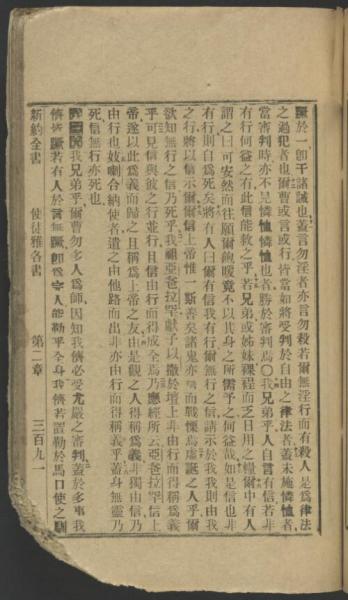 蹶於一卽干諸誡也蓋言勿淫者亦言勿殺若爾無淫行而有殺人是爲律法
之過犯者也爾曹或言或行皆當如將受判於自由之律法者蓋未施憐恤者
當審判時亦不見憐恤憐恤也者勝於審判焉〇我兄弟乎人自言有信若非
有行何益之有此信能救之乎若兄弟或姊妹裸裎而乏日用之糧爾中有人
謂之曰可安然而往願爾飽暖竟不以其身之所需予之何益哉如是信也非
有行則自爲死矣將有人曰爾有信我有行爾無行之信請示於我我則由我
之行將以信示爾爾信上帝惟一斯善矣諸鬼亦信而戰慄焉虛誕之人乎爾
欲知無行之信乃死乎我祖亞爸拉罕獻子以撒於壇上非由行而得稱爲義
乎可見信與彼之行並行且信由行而得成全焉乃應經所云亞爸拉罕信上
帝遂以此爲義而歸之且稱爲上帝之友由是觀之人得稱爲義非獨由信乃
由行也妓喇合納使者遣之由他路而出非亦由行而得稱義乎蓋身無靈乃
死信無行亦死也
我兄弟乎爾曹勿多人爲師因知我儕必受尤嚴之審判蓋於多事我
儕皆蹶若有人於言無蹶卽爲宰人能勒乎全身我儕若置勒於馬口使之馴
新約全書 使徒雅各書 第二章 三百九一